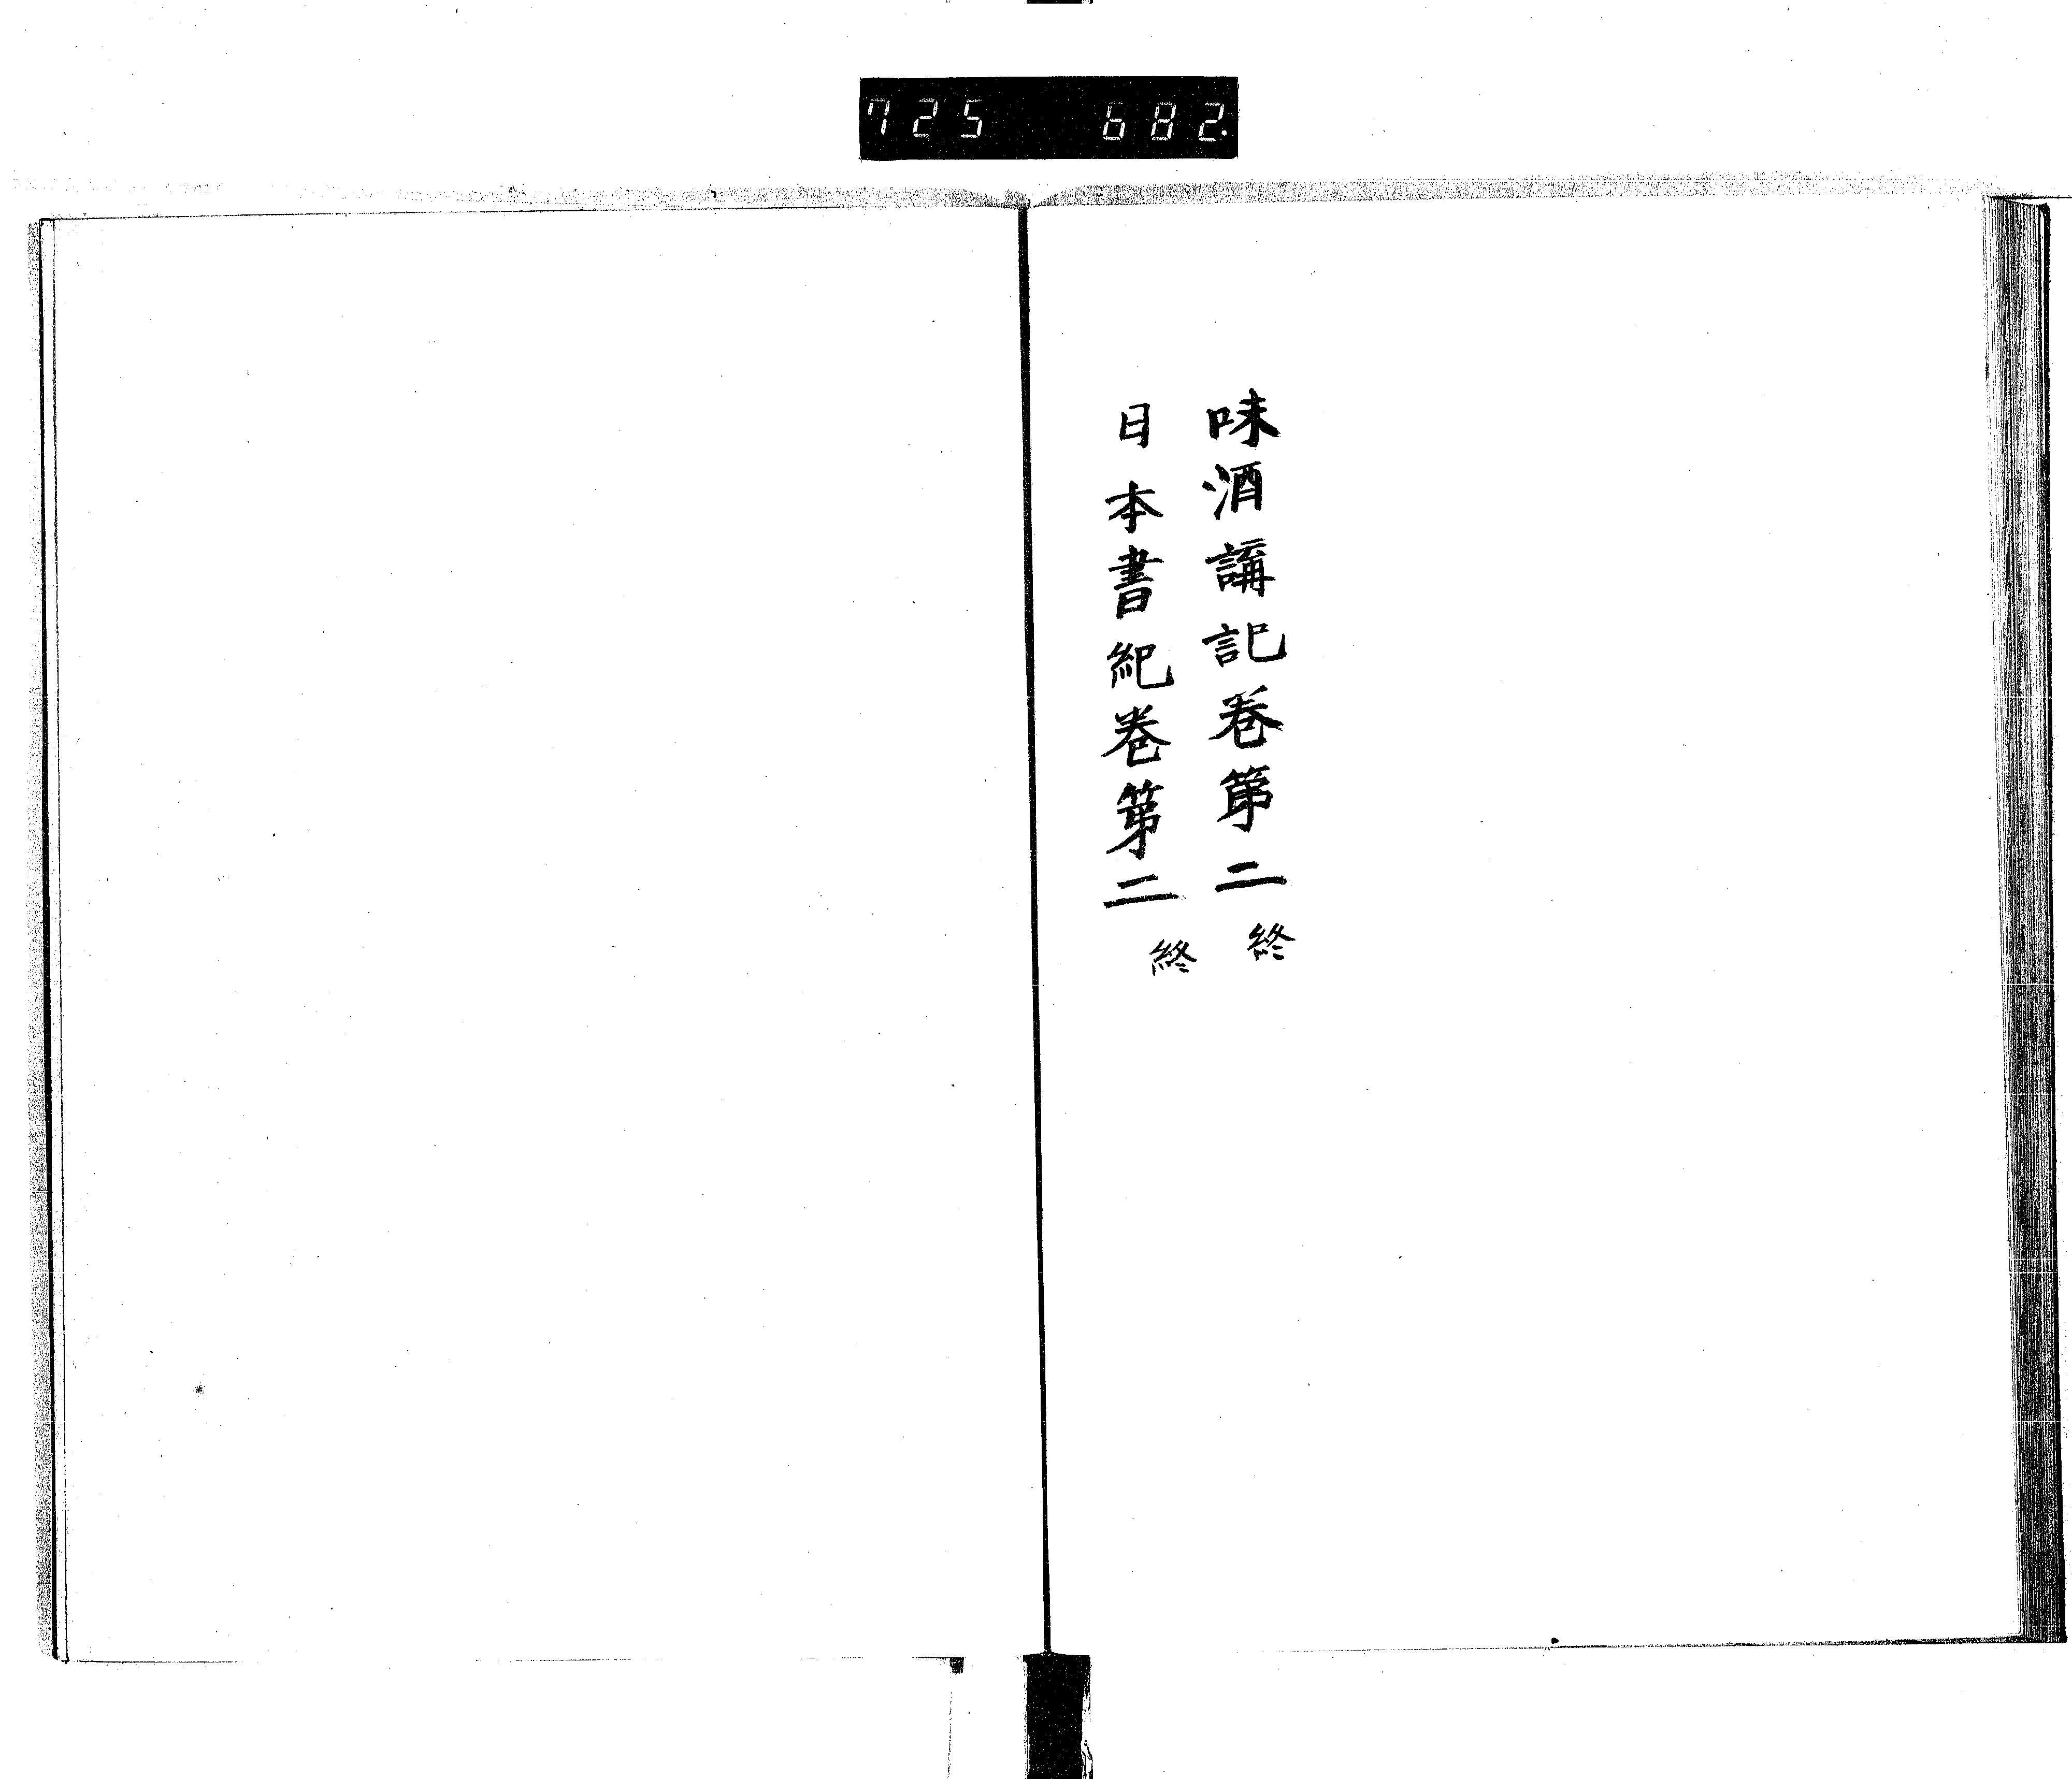 725 682.
味酒講記卷第二 終
日本書紀卷第二 終